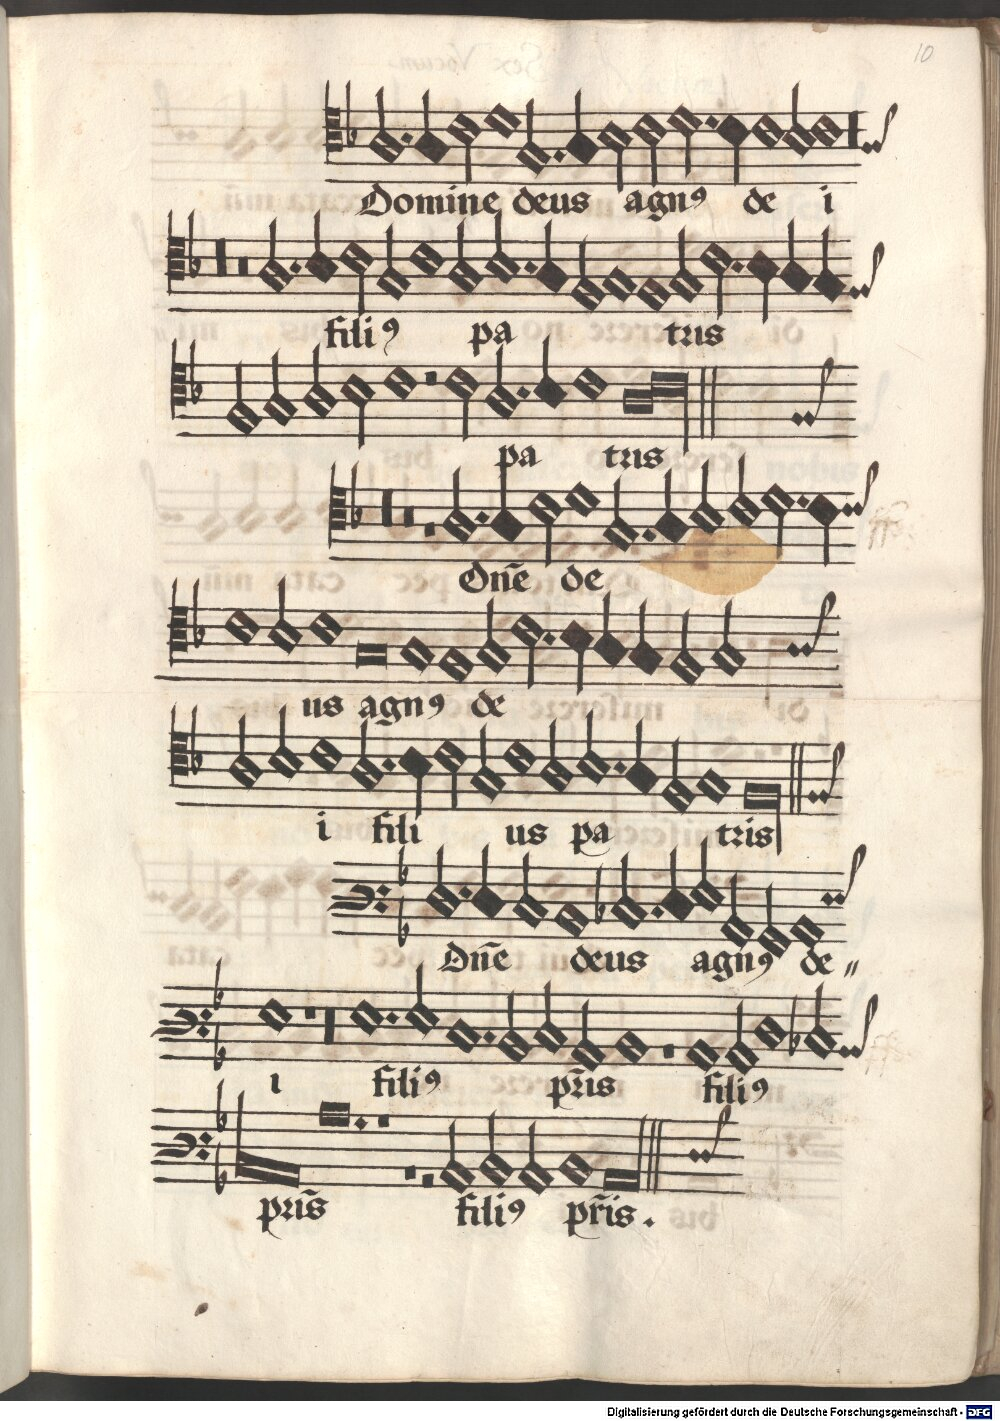 10
Domine deus agnꝰ de i
filiꝰ pa tris
pa tris
Dn̄e de
us agnꝰ de
i fili us pa tris
Dn̄e deus agnꝰ de〃
i filiꝰ pr̄is filiꝰ
pr̄is filiꝰ pr̄is.
Digitalisierung gefördert durch die Deutsche Forschungsgemeinschaft - DFG